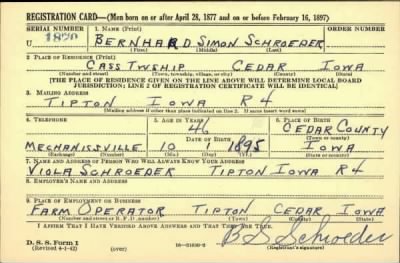 REGISTRATION CARD—(Men born on or after April 28, 1877 and on or before February 16, 1897)
SERIAL NUMBER 1. NAME (Print) ORDER NUMBER
U 1820 BERNHARD SIMON SCHROEDER
(First) (Middle) (Last)
2. PLACE OF RESIDENCE (Print)
CASS TWSHIP CEDAR IOWA
(Number and street) (Town, township, village, or city) (County) (State)
[THE PLACE OF RESIDENCE GIVEN ON THE LINE ABOVE WILL DETERMINE LOCAL BOARD
JURISDICTION; LINE 2 OF REGISTRATION CERTIFICATE WILL BE IDENTICAL]
3. MAILING ADDRESS
TIPTON IOWA R 4
[Mailing address if other than place indicated on line 2. If same insert word same]
4. TELEPHONE 5. AGE IN YEARS 6. PLACE OF BIRTH
46 CEDAR COUNTY
DATE OF BIRTH (Town or county)
MECHANISSVILLE 10 1 1895 IOWA
(Exchange) (Number) (Mo.) (Day) (Yr.) (State or country)
7. NAME AND ADDRESS OF PERSON WHO WILL ALWAYS KNOW YOUR ADDRESS
VIOLA SCHROEDER TIPTON IOWA R4
8. EMPLOYER'S NAME AND ADDRESS
9. PLACE OF EMPLOYMENT OR BUSINESS
FARM OPERATOR TIPTON CEDAR IOWA
(Number and street or R. F. D. number) (Town) (County) (State)
I AFFIRM THAT I HAVE VERIFIED ABOVE ANSWERS AND THAT THEY ARE TRUE.
B S Schroeder
D. S. S. Form 1
(Revised 4-1-42) (over) (Registrant's signature)